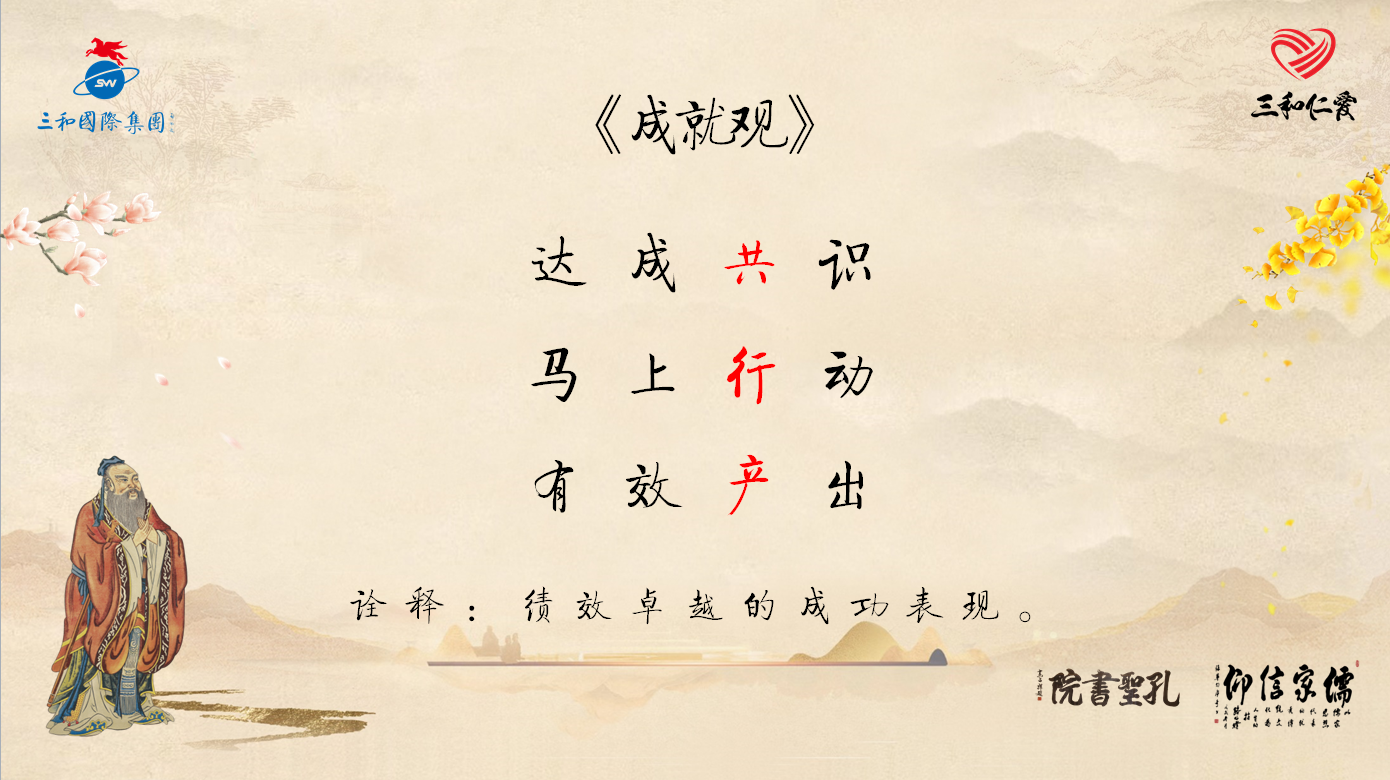 三和國際集團
三和仁爱
《成就观》
达成共识
马上行动
有效产出
诠释：绩效卓越的成功表现。
孔聖書院
儒家信仰